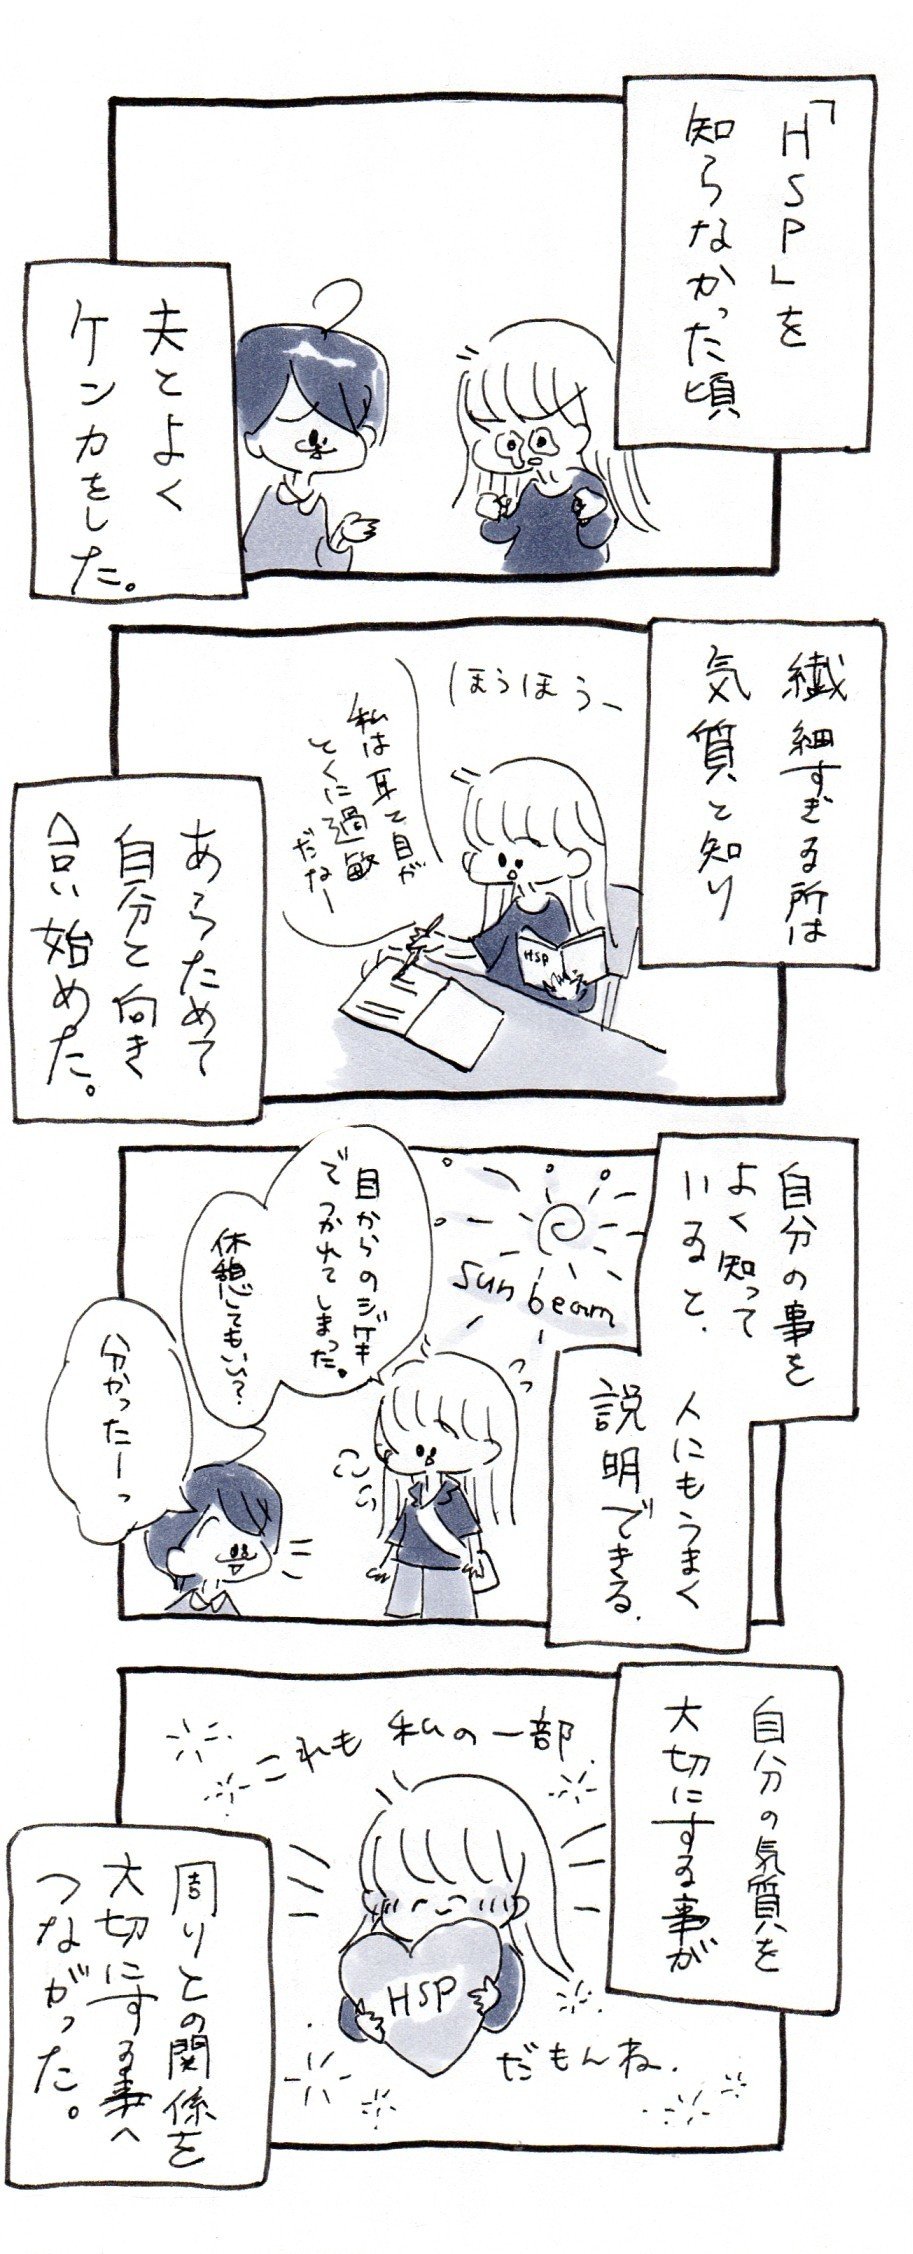 「HSP」を
知らなかった頃
夫とよく
ケンカをした。
繊細すぎる所は
気質と知り
ほうほうー
私は耳と目が
とくに過敏
だなー
HSP
あらためて
自分と向き
合い始めた。
自分の事を
よく知って
いると、
人にもうまく
説明できる.
sun beam
目からのシゲキ
でつかれて
しまった。
休憩してもいい?
分かったーっ
自分の気質を
大切にする事が
これも私の一部
HSP
だもんね.
周りとの関係を
大切にする事へ
つながった。